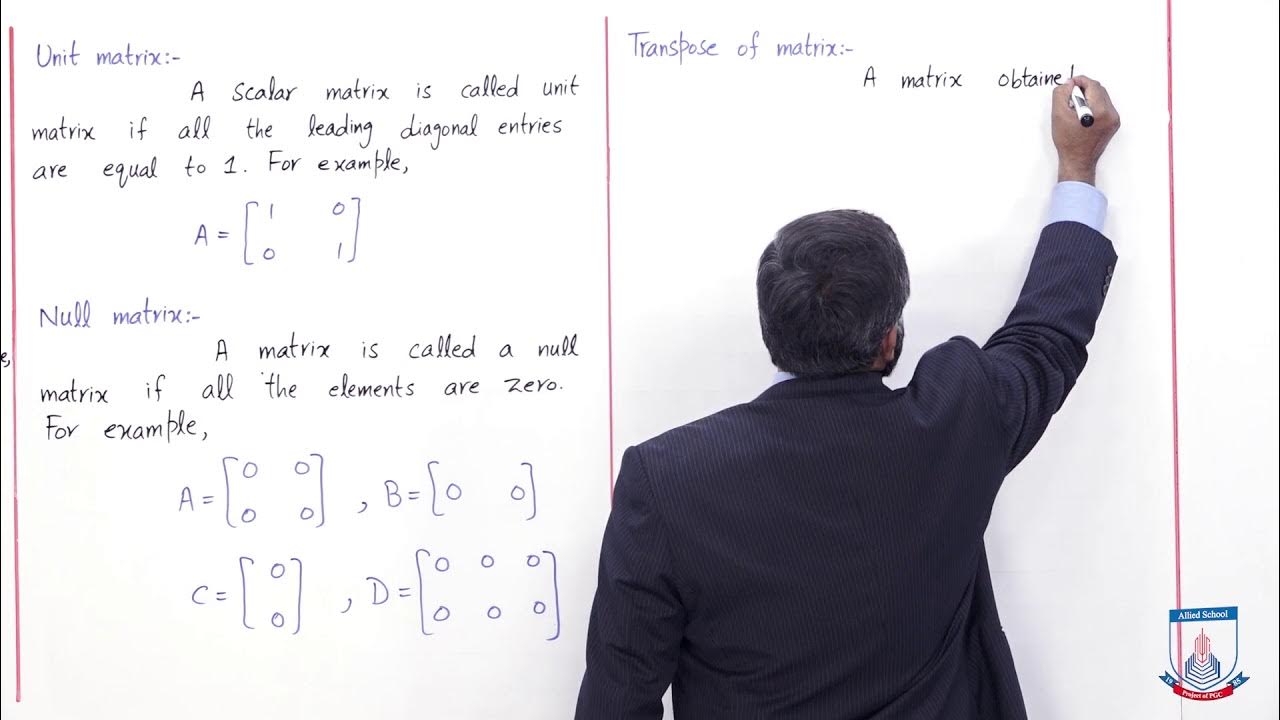 Unit matrix:-
A scalar matrix is called unit
matrix if all the leading diagonal entries
are equal to 1. For example,
A = [1 0
0 1]
Null matrix:-
e,
A matrix is called a null
matrix if all the elements are zero.
For example,
A = [0 0
0 0] , B = [0 0]
C = [0
0] , D = [0 0 0
0 0 0]
Transpose of matrix:-
A matrix obtained
Allied School
19 85
Project of PGC